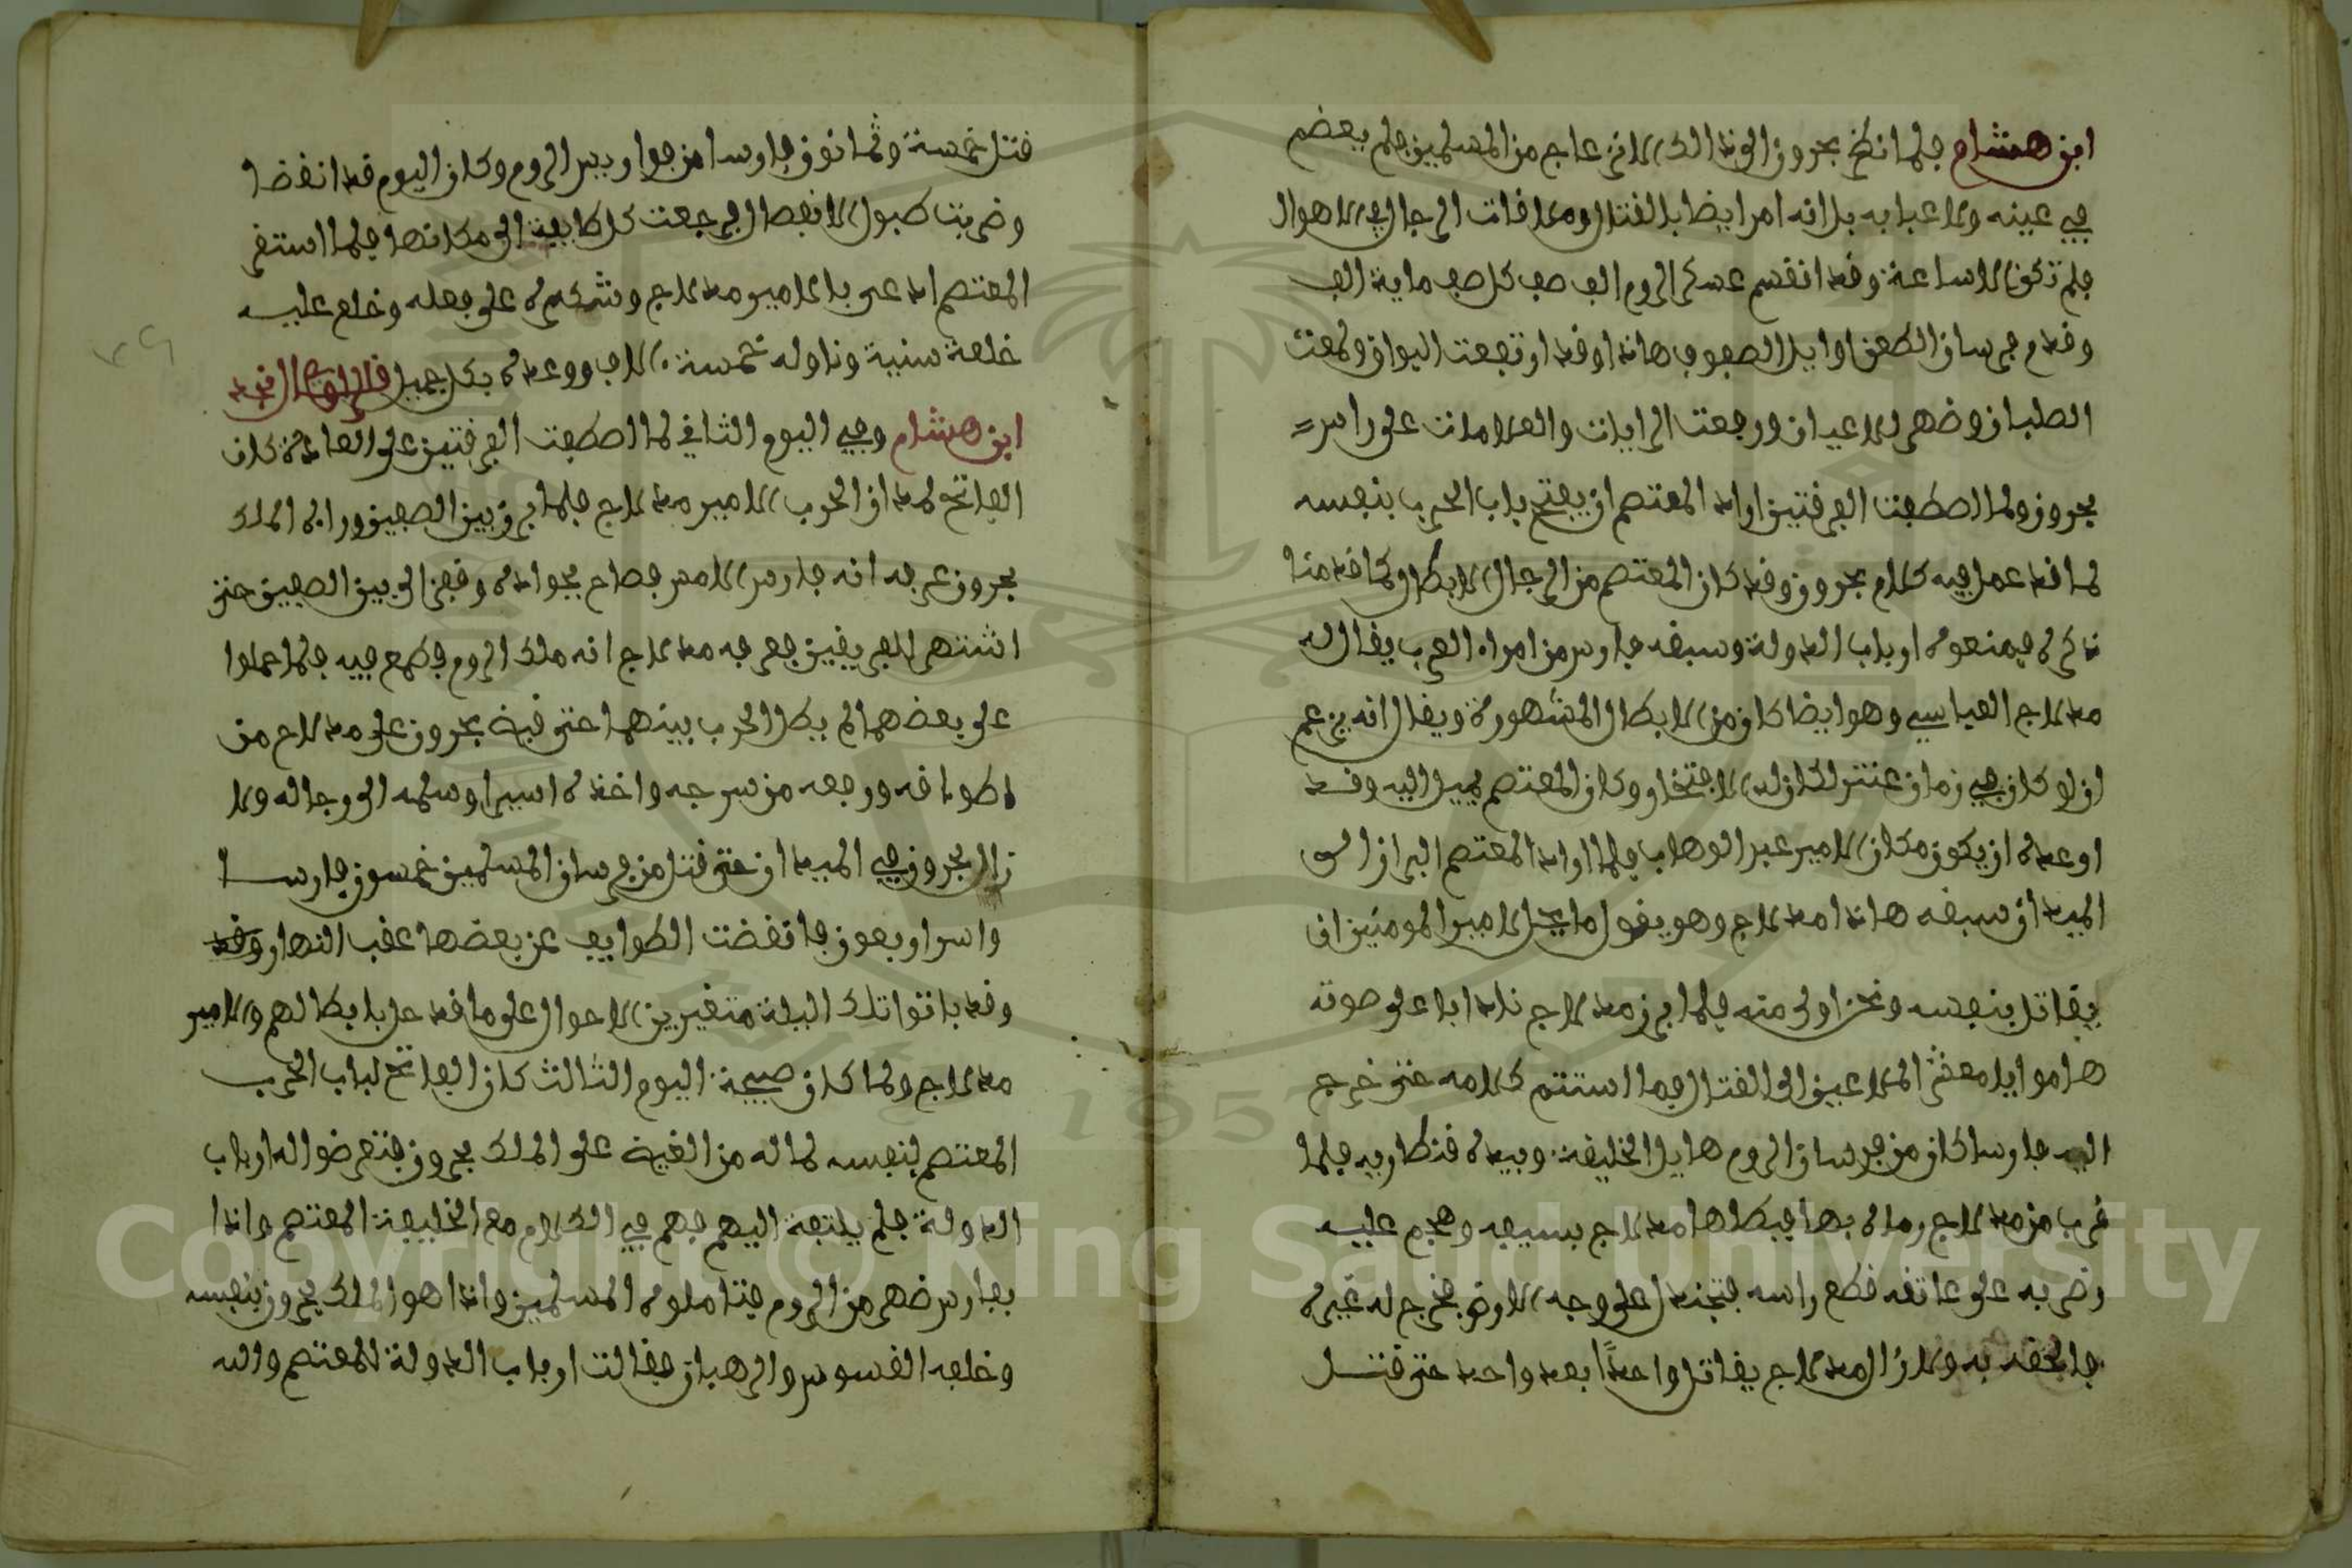 ابن هشام فلما انكر بحرون الى ذالك الانزعاج من المسلمين فلم يعضم
في عينه ولا عبا به بل انه امر ايضا بالقتال وملاقات الرجال في الاهوال
فلم تكن الا ساعة وقد انقسم عسكر الروم الف صف كل صف ماية الف
وقدم فرسان الطعن اوايل الصفوف هاذا وقد ارتفعت البواق ولمعت
الصلبان وضهر للاعيان ورجعت الرايات والعلامات على راس
بحرون ولما اصطفت الفرقتين اراد المعتصم ان يفتح باب الحرب بنفسه
لما قد عمل فيه كلام بحرون وقد كان المعتصم من الرجال الابطال كما قدمنا
ذكره فمنعوه ارباب الدولة وسبقه فارس من امراء العرب يقال له
مدلاج العباسي وهو ايضا كان من الابطال المشهورة ويقال انه يزعم
ان لو كان في زمان عنتر لكان له الافتخار وكان المعتصم يميل اليه وقد
اوعده ان يكون مكان الامير عبد الوهاب فلما اراد المعتصم البراز الى
الميدان سبقه هاذا مدلاج وهو يقول ما يحل لامير المومنين ان
يقاتل بنفسه ونحن اولى منه فلما برز مدلاج نادا باعلى صوته
هلموا يا معشر الملاعين الى القتال فما استتم كلامه حتى خرج
اليه فارسا كان من فرسان الروم هايل الخليفة وبيده قنطاريه فلما
قرب من مدلاج رماه بها فبطلها مدلاج بسيفه وهجم عليه
وضربه على عاتقه قطع راسه فتجندل على وجه الارض فخرج له غيره
فالحقه به ولا زال مدلاج يقاتل واحدا بعد واحد حتى قتل
قتل خمسة وثمانون فارسا من جوا وبيس الروم وكان اليوم قد انقضا
وضربت طبول الانفصال فرجعت كل طايفة الى مكانها فلما استقر
المعتصم استدعى بالامير مدلاج وشكره على فعله وخلع عليه
خلعة سنية وناوله خمسة الاف ووعده بكل جميل قال الراوي نجد
ابن هشام وفي اليوم الثاني لما اصطفت الفرقتين على العادة كان
الفاتح لميدان الحرب الامير مدلاج فلما برز بين الصفين وراه الملك
بحرون عرفه انه فارس الامس فصاح بجواده وقفز الى بين الصفين حتى
اشتهر للفريقين فعرفه مدلاج انه ملك الروم فطمع فيه فلما حملوا
على بعضهما لم يطل الحرب بينهما حتى قبض بحرون على مدلاج من
اطواقه ورفعه من سرجه واخذه اسيرا وسلمه الى رجاله ولا
زال بحرون في الميدان حتى قتل من فرسان المسلمين خمسون فارسا
واسر اربعون فانفضت الطوايف عن بعضها عقب النهار وقد
وقد باتوا تلك اليلة متغيرين الاحوال على ما قد حل بابطالهم والامير
مدلاج ولما كان صبيحة اليوم الثالث كان الفاتح لباب الحرب
المعتصم بنفسه لما له من الغيض على الملك بحرون فتعرضوا له ارباب
الدولة فلم يلتفت اليهم فهم في الكلام مع الخليفة المعتصم واذا
بفارس ضهر من الروم فتاملوه المسلمين واذا هو الملك بحرون بنفسه
وخلفه القسوس والرهبان فقالت ارباب الدولة للمعتصم والله
Copyright © King Saud University
1957